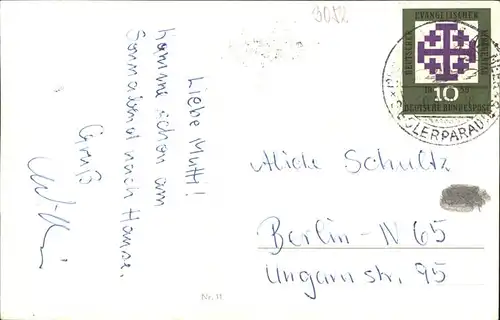 3012
EVANGELISCHER
DEUTSCHER
KIRCHENTAG
19 59
10
DEUTSCHE BUNDESPOST
SEGLERPARAD
Liebe Mutti!
Komme schon am
Sonnabend nach Hause.
Gruß
Schultz
Berlin-N 65
Ungarnstr. 95
Nr. 11